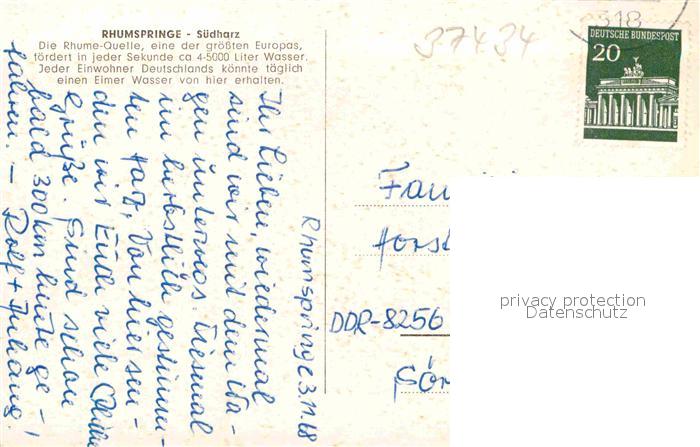 RHUMSPRINGE - Südharz
Die Rhume-Quelle, eine der größten Europas,
fördert in jeder Sekunde ca 4-5000 Liter Wasser.
Jeder Einwohner Deutschlands könnte täglich
einen Eimer Wasser von hier erhalten.
37434
318
DEUTSCHE BUNDESPOST
20
Rhumspringe 3.11.68
Ihr Lieben, wiedermal
sind wir mit dem Wa-
gen unterwegs. Diesmal
im herbstlich gestimm-
ten Harz. Von hier sen-
den wir Euch viele
Grüße. Sind schon
bald 300 km heute ge-
fahren. –
Rolf +
Fam
Horst
DDR-8256
Gör
privacy protection
Datenschutz